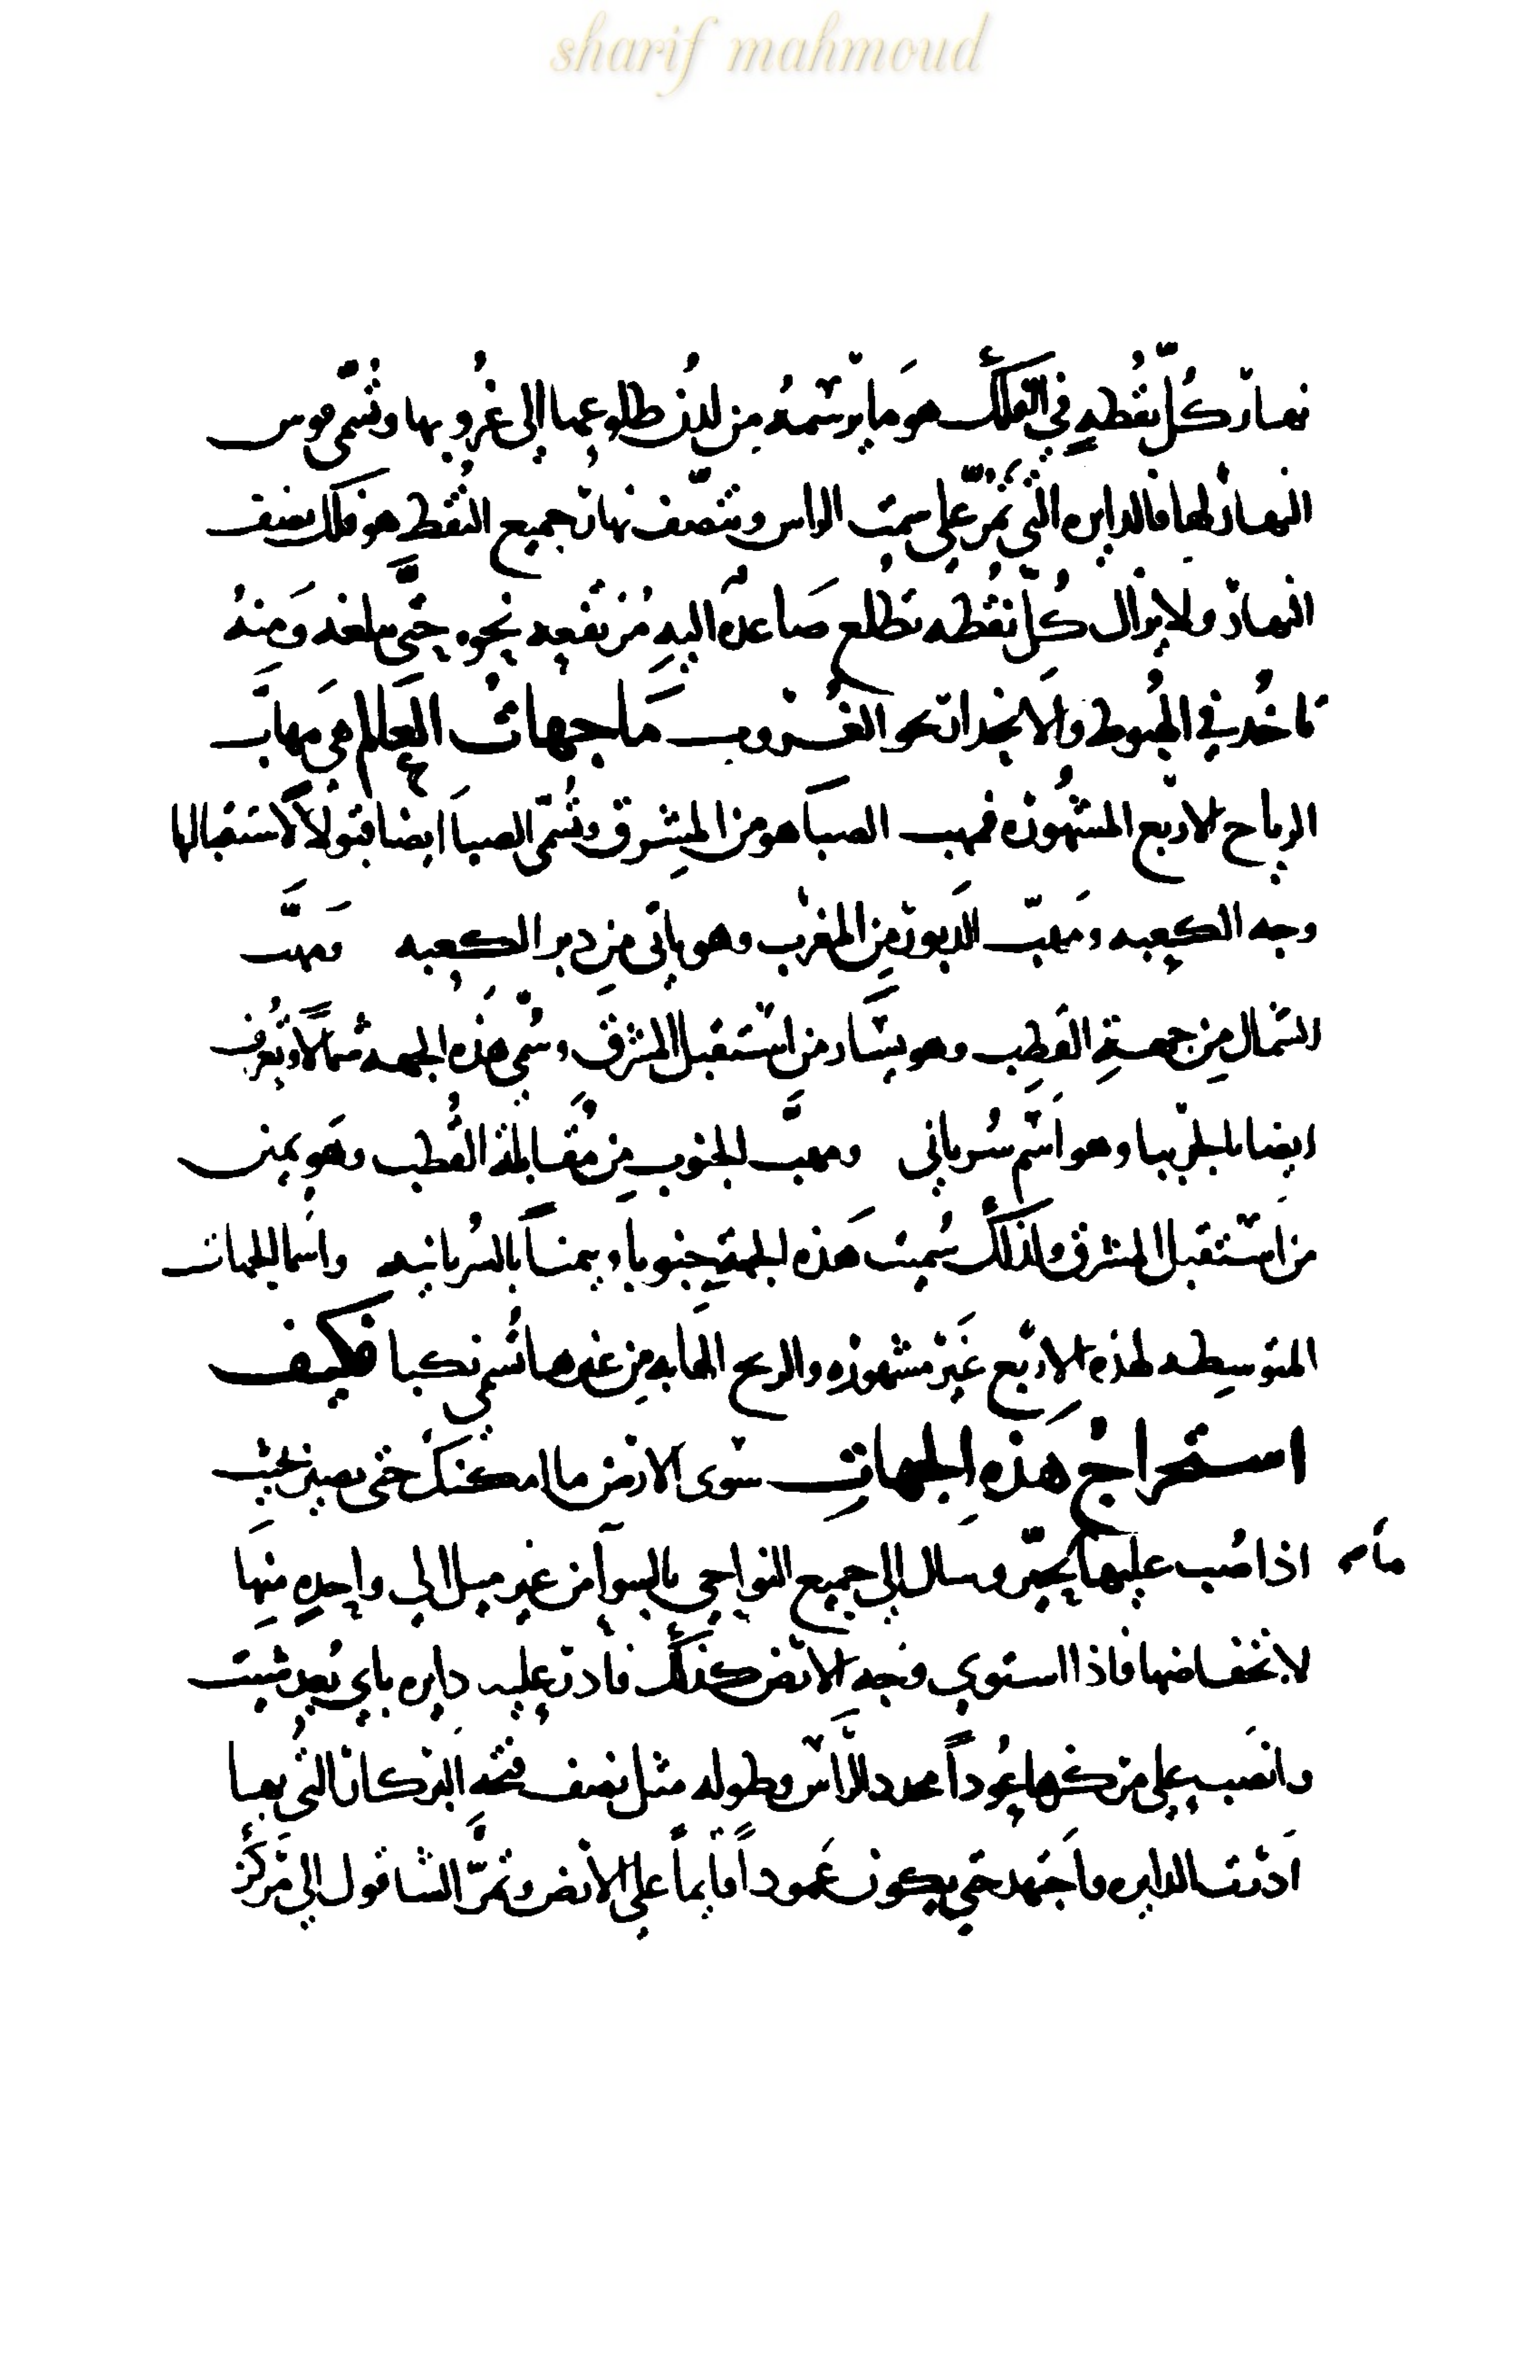 sharif mahmoud
نهارُ كُلّ نقُطهٍ في الفلك هوَ ما يرسمهُ مِن لدُن طلوعها إلى غُروبها وتُسمّى قوس
النهار لها فالدايره التي تمُرّ على سمت الراس وتنصّف نهار جميع النُقط هو فلك نصف
النهار ولا يزال كُلّ نقُطه تطلُع صَاعدةً اليهِ مُرتفعه نحوه حتَّى تبلغه وَمنهُ
تاخُذ في الهبُوط والانحدار نحو الغُروب مَا جهاتُ العَالم هي مَهابّ
الرياح الاربع المشهُوره فمهب الصبَا هو من المشِرق وتُسمّى الصبَا ايضا قبَولاً لاستقبالها
وجه الكعبه ومَهبّ الدَبور مِن المغرب وهو ياتى مِن دبر الكعبه ومَهبّ
الشمال مِن جهةِ القطب وهو يسَار مَن استقبل المشرق وسُمّى هَذه الجهه شمالاً وتُعرف
ايضا بالجربيا وهو اَسم سُرياني ومهبَّ الجنوب مِن مُقَابلة القُطب وهَو يمين
من اَستقبل المشرق ولذلك سُميت هَذه الجهة جنوباً ويمناً بالسُريانيه واسَما الجهات
المتوسطه لهذهِ الاربع غَير مشهوره والريح الهابه مِن غيرها تُسمى نكبا فكيف
استخراجُ هَذهِ الجهاتِ سوّى الارض ما امكنك حتى تصير بحَيث
اذا صُب عليها مآء تحيّر وسَال إلى جميع النواحي بالسوآ من غير ميل الى واحِده مِنهَا
لانخفاضها فاذا استوى وجَه الارض كذلك فادر عليه دايره باي بُعد شيت
وانصَب على مركزها عُوداً محدد الرَّاس وطوله مثل نصف فتحه البركار التي بها
اَدرت الدايره واَجتهد حَتى يكون عَموداً قايماً على الارض وتمرَّ الشاقول الى مَركز